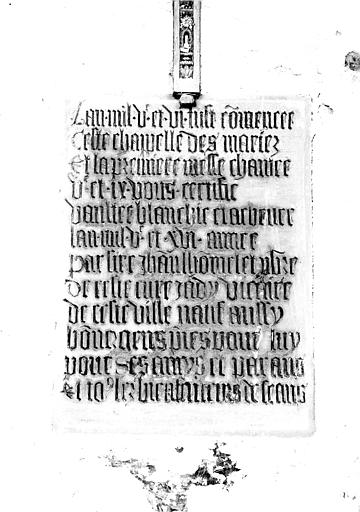 Lan mil vc et vi fust cōmencee
Ceste chappelle des mariez
Et la premiere messe chantee
vc et ix vous certifie
blanchie et achevee
lan mil vc et xvi annee
par sire Jhan lhomme
de ceste cure jady
de ceste ville natif aussy
bourgeus pries pour luy
pour ses amys et
les bienfaiteurs de ceans